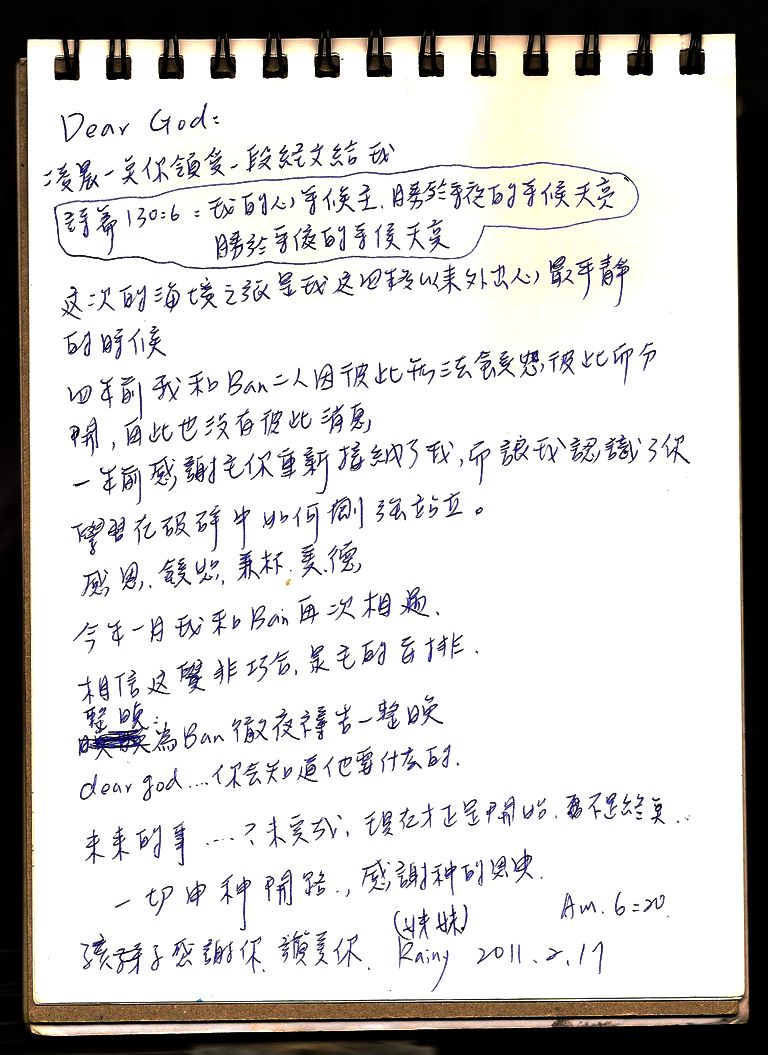 Dear God:
凌晨一與你領受一段經文給我
詩篇130:6:我的心等候主,勝於守夜的等候天亮
勝於守夜的等候天亮
這次的海境之旅是我這四年以來外出心最平靜
的時候
四年前我和Ban二人因彼此無法饒恕彼此而分
開,自此也沒有彼此消息
一年前感謝主你重新接納了我,而讓我認識了你
學習在破碎中如何剛強站立。
感恩、饒恕、
今年一月我和Ban再次相遇.
相信这雙非巧合,是主的安排.
整晚:
為Ban徹夜禱告一整晚
dear god...你会知道他要什么的.
未来的事....現在才正是開始,不是終莫..
一切由神開路.,感謝神的恩典.
Am. 6:20.
(妹妹)
孩子感謝你、讚美你. Rainy 2011.2.17